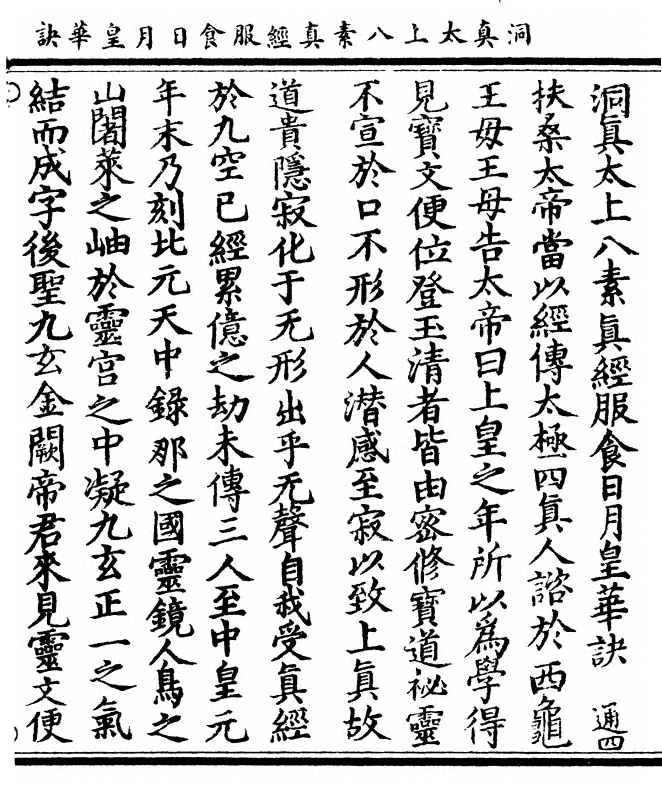 洞真太上八素真經服食日月皇華訣
洞眞太上八素眞經服食日月皇華訣 通四
扶桑太帝當以經傳太極四眞人諮於西龜
王母王母告太帝曰上皇之年所以爲學得
見寶文便位登玉清者皆由密修寶道祕靈
不宣於口不形於人潜感至寂以致上眞故
道貴隱寂化于无形出乎无聲自我受眞經
於九空已經累億之劫未傳三人至中皇元
年末乃刻比元天中録那之國靈鏡人鳥之
山閣萊之岫於靈宫之中凝九玄正一之氣
結而成字後聖九玄金闕帝君來見靈文便